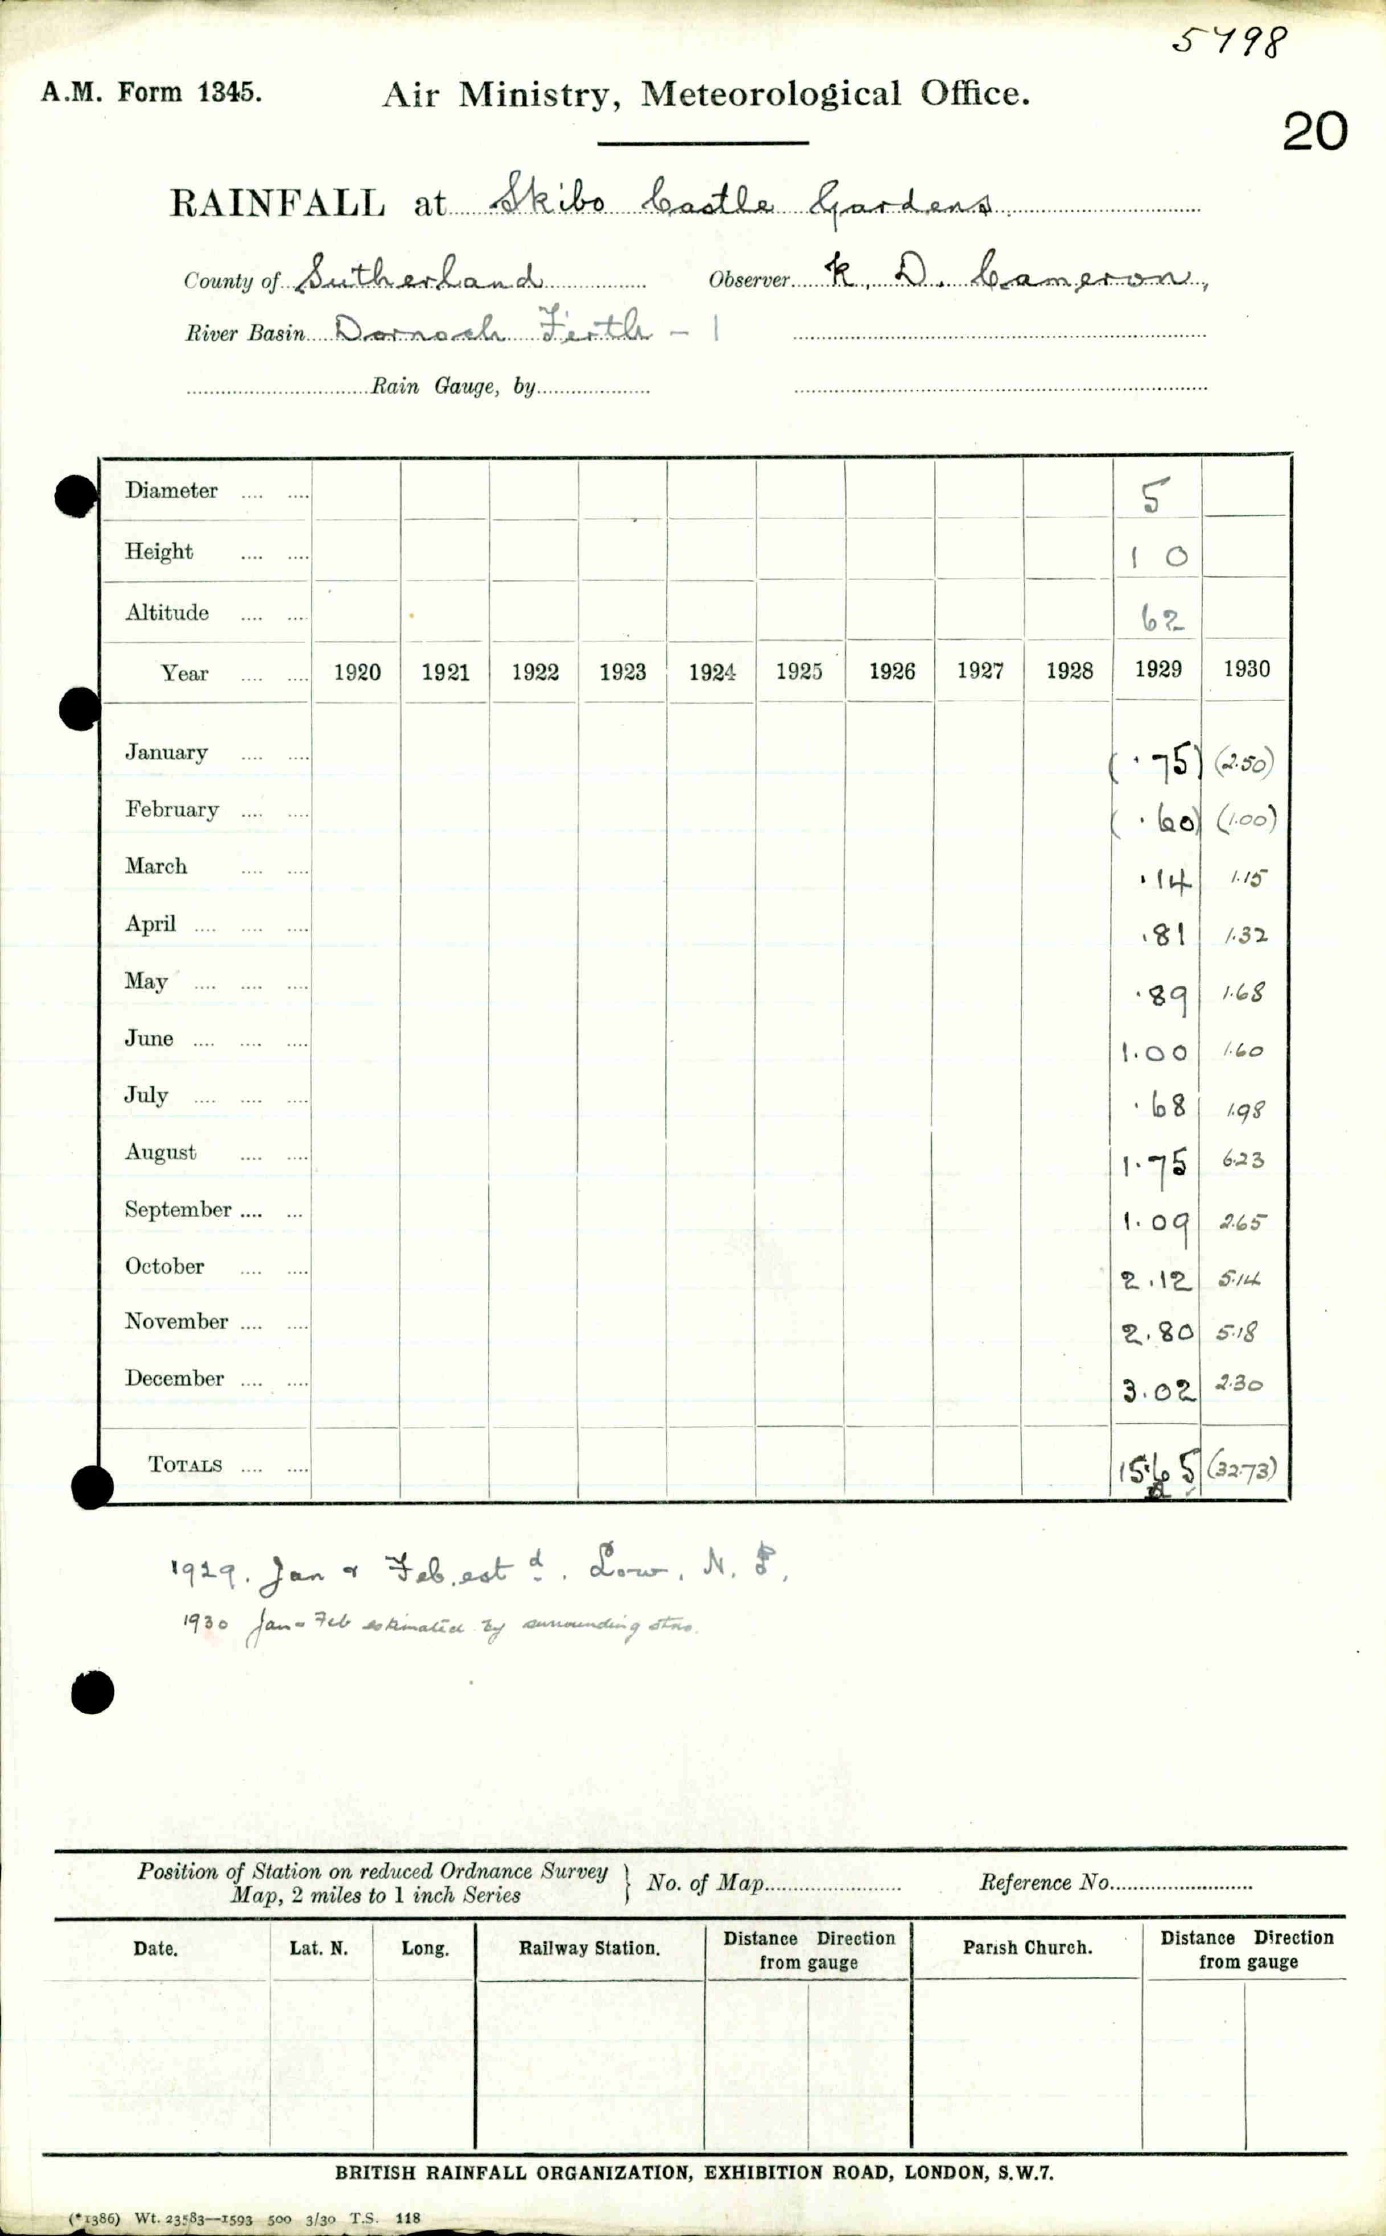 5798
A.M. Form 1345. Air Ministry, Meteorological Office.
20
RAINFALL at Skibo Castle Gardens.
County of Sutherland Observer K. D. Cameron,
River Basin Dornoch Firth - 1
Rain Gauge, by
Diameter 5
Height 1 0
Altitude 62
Year 1920 1921 1922 1923 1924 1925 1926 1927 1928 1929 1930
January (.75) (2.50)
February (.60) (1.00)
March .14 1.15
April .81 1.32
May .89 1.68
June 1.00 1.60
July .68 1.98
August 1.75 6.23
September 1.09 2.65
October 2.12 5.14
November 2.80 5.18
December 3.02 2.30
TOTALS 15.65 (32.73)
1929. Jan & Feb. estd. Low. N.
1930 Jan & Feb estimated by surrounding stns.
Position of Station on reduced Ordnance Survey Map, 2 miles to 1 inch Series } No. of Map Reference No.
Date. Lat. N. Long. Railway Station. Distance Direction from gauge Parish Church. Distance Direction from gauge
BRITISH RAINFALL ORGANIZATION, EXHIBITION ROAD, LONDON, S.W.7.
(*1386) Wt. 23583—1593 500 3/30 T.S. 118